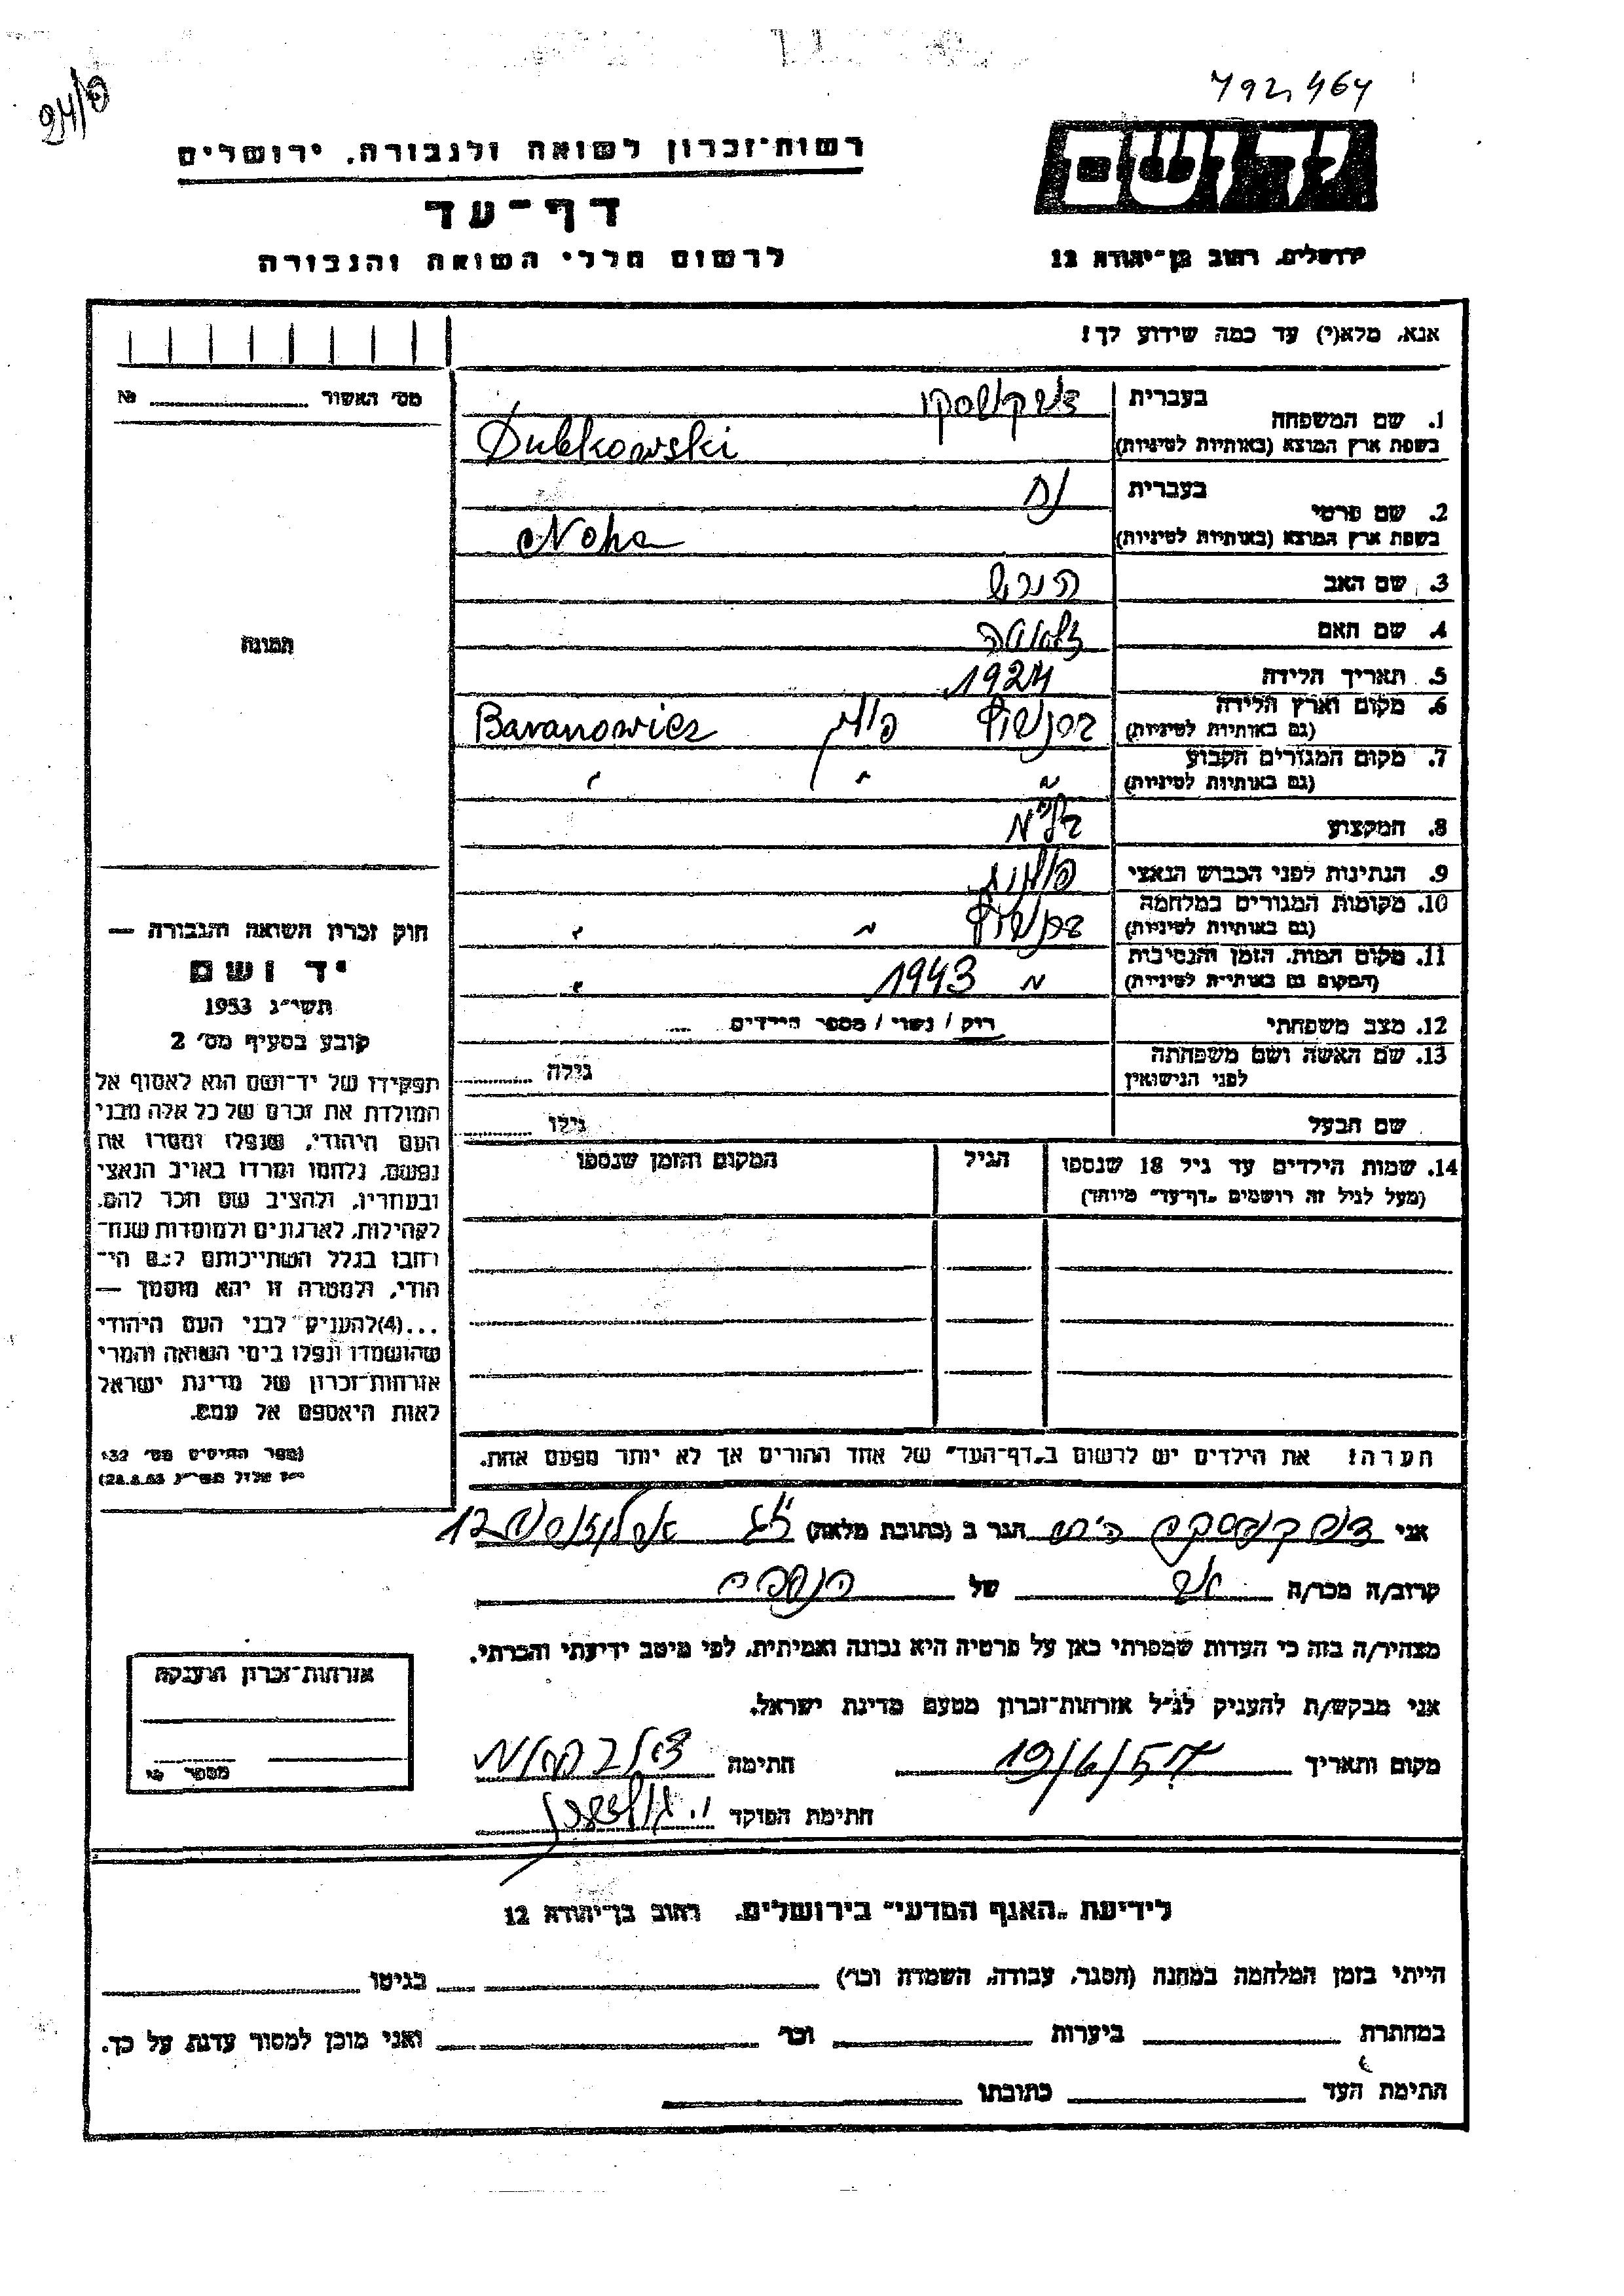 792,464
24/פ
רשות־זכרון לשואה ולגבורה, ירושלים
דף־עד
לרשום חללי השואה והגבורה
יד ושם
ירושלים, רחוב בן־יהודה 12
אנא, מלא(י) עד כמה שידוע לך!
מס׳ האשור № 
1. שם המשפחה
בעברית
בשפת ארץ המוצא (באותיות לטיניות)
Dubkowski
2. שם פרטי
בעברית נח
בשפת ארץ המוצא (באותיות לטיניות)
Noha
3. שם האב הירש
4. שם האם
5. תאריך הלידה 1924
6. מקום וארץ הלידה
(גם באותיות לטיניות)
פולין Baranowicz
7. מקום המגורים הקבוע
(גם באותיות לטיניות)
" " "
8. המקצוע
9. הנתינות לפני הכבוש הנאצי פולנית
10. מקומות המגורים במלחמה
(גם באותיות לטיניות)
" "
11. מקום המות, הזמן והנסיבות
(המקום גם באותיות לטיניות)
" 1943 "
12. מצב משפחתי רוק / נשוי / מספר הילדים
13. שם האשה ושם משפחתה
לפני הנישואין
גילה
שם הבעל גילו
14. שמות הילדים עד גיל 18 שנספו
(מעל לגיל זה רושמים „דף־עד" מיוחד)
הגיל
המקום והזמן שנספו
הערה! את הילדים יש לרשום ב„דף־העד" של אחד ההורים אך לא יותר מפעם אחת.
תמונה
חוק זכרון השואה והגבורה —
יד ושם
תשי״ג 1953
קובע בסעיף מס׳ 2
תפקידו של יד־ושם הוא לאסוף אל
המולדת את זכרם של כל אלה מבני
העם היהודי, שנפלו ומסרו את
נפשם, נלחמו ומרדו באויב הנאצי
ובעוזריו, ולהציב שם וזכר להם,
לקהילות, לארגונים ולמוסדות שנח־
רבו בגלל השתייכותם לעם הי־
הודי, ולמטרה זו יהא מוסמך —
...(4)להעניק לבני העם היהודי
שהושמדו ונפלו בימי השואה והמרי
אזרחות־זכרון של מדינת ישראל
לאות היאספם אל עמם.
(ספר החוקים מס׳ 132
28.8.53)
אני הגר ב (כתובת מלאה) 12
קרוב/ה מכר/ה של
מצהיר/ה בזה כי העדות שמסרתי כאן על פרטיה היא נכונה ואמיתית, לפי מיטב ידיעתי והכרתי.
אני מבקש/ת להעניק לנ״ל אזרחות־זכרון מטעם מדינת ישראל.
מקום ותאריך 19/6/57 חתימה
חתימת הפוקד
אזרחות־זכרון הוענקה
מספר
לידיעת „האגף המדעי" בירושלים, רחוב בן־יהודה 12
הייתי בזמן המלחמה במחנה (הסגר, עבודה, השמדה וכו׳) בגיטו
במחתרת ביערות וכו׳ ואני מוכן למסור עדות על כך.
חתימת העד כתובתו